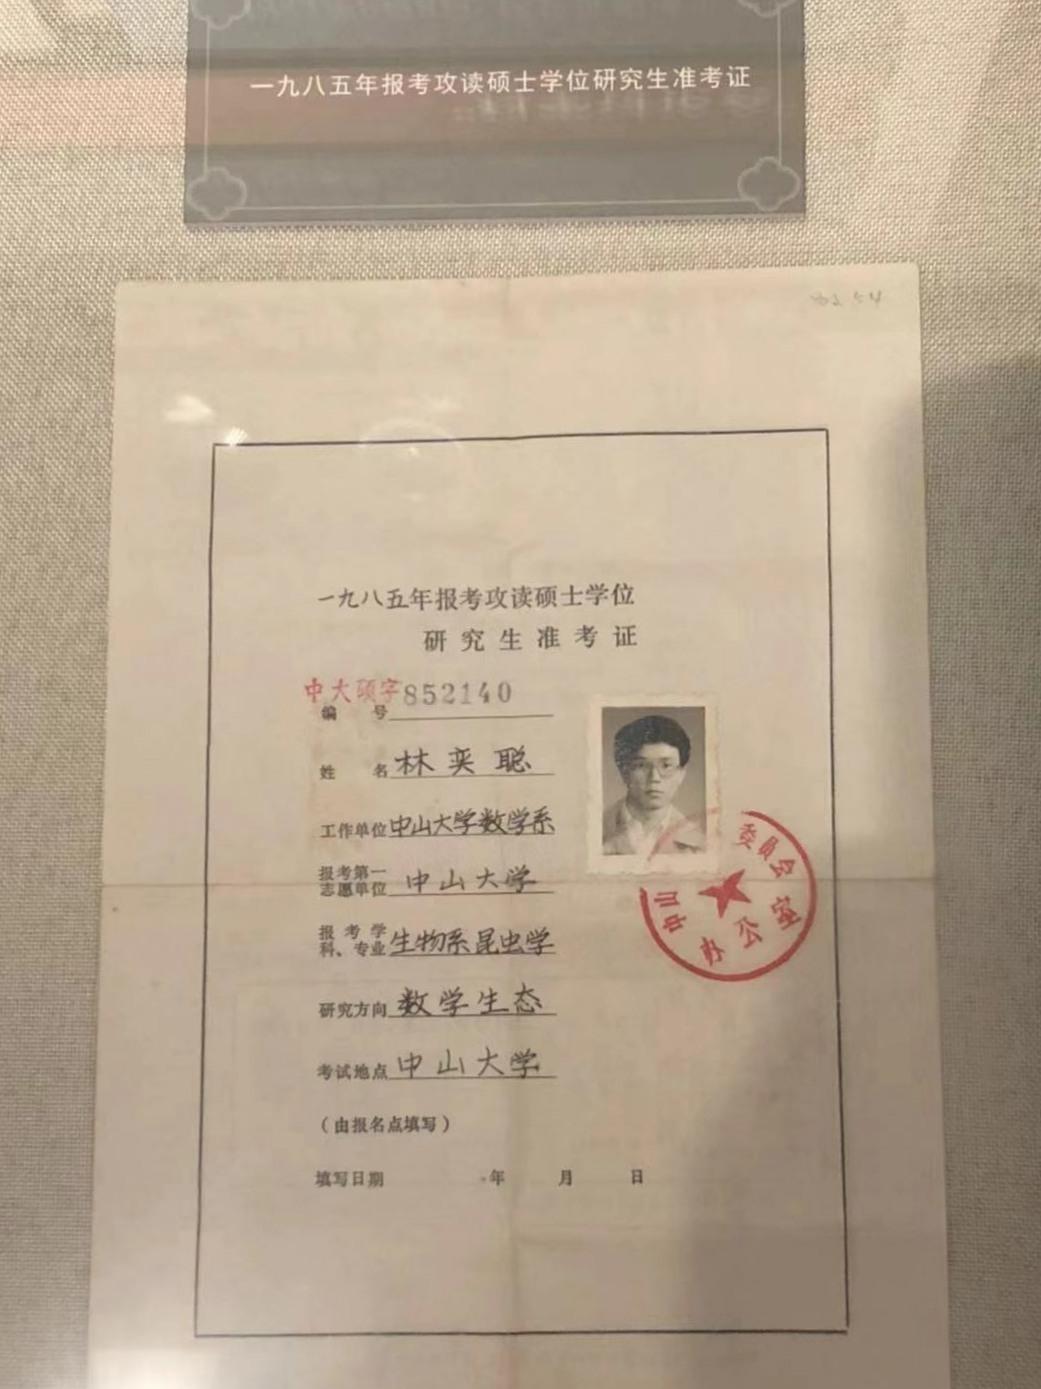 一九八五年报考攻读硕士学位研究生准考证
一九八五年报考攻读硕士学位
研究生准考证
中大硕字852140
编号
姓名 林奕聪
工作单位 中山大学数学系
报考第一
志愿单位 中山大学
报考学
科、专业 生物系昆虫学
研究方向 数学生态
考试地点 中山大学
（由报名点填写）
填写日期 年 月 日
中山 委员会
办公室